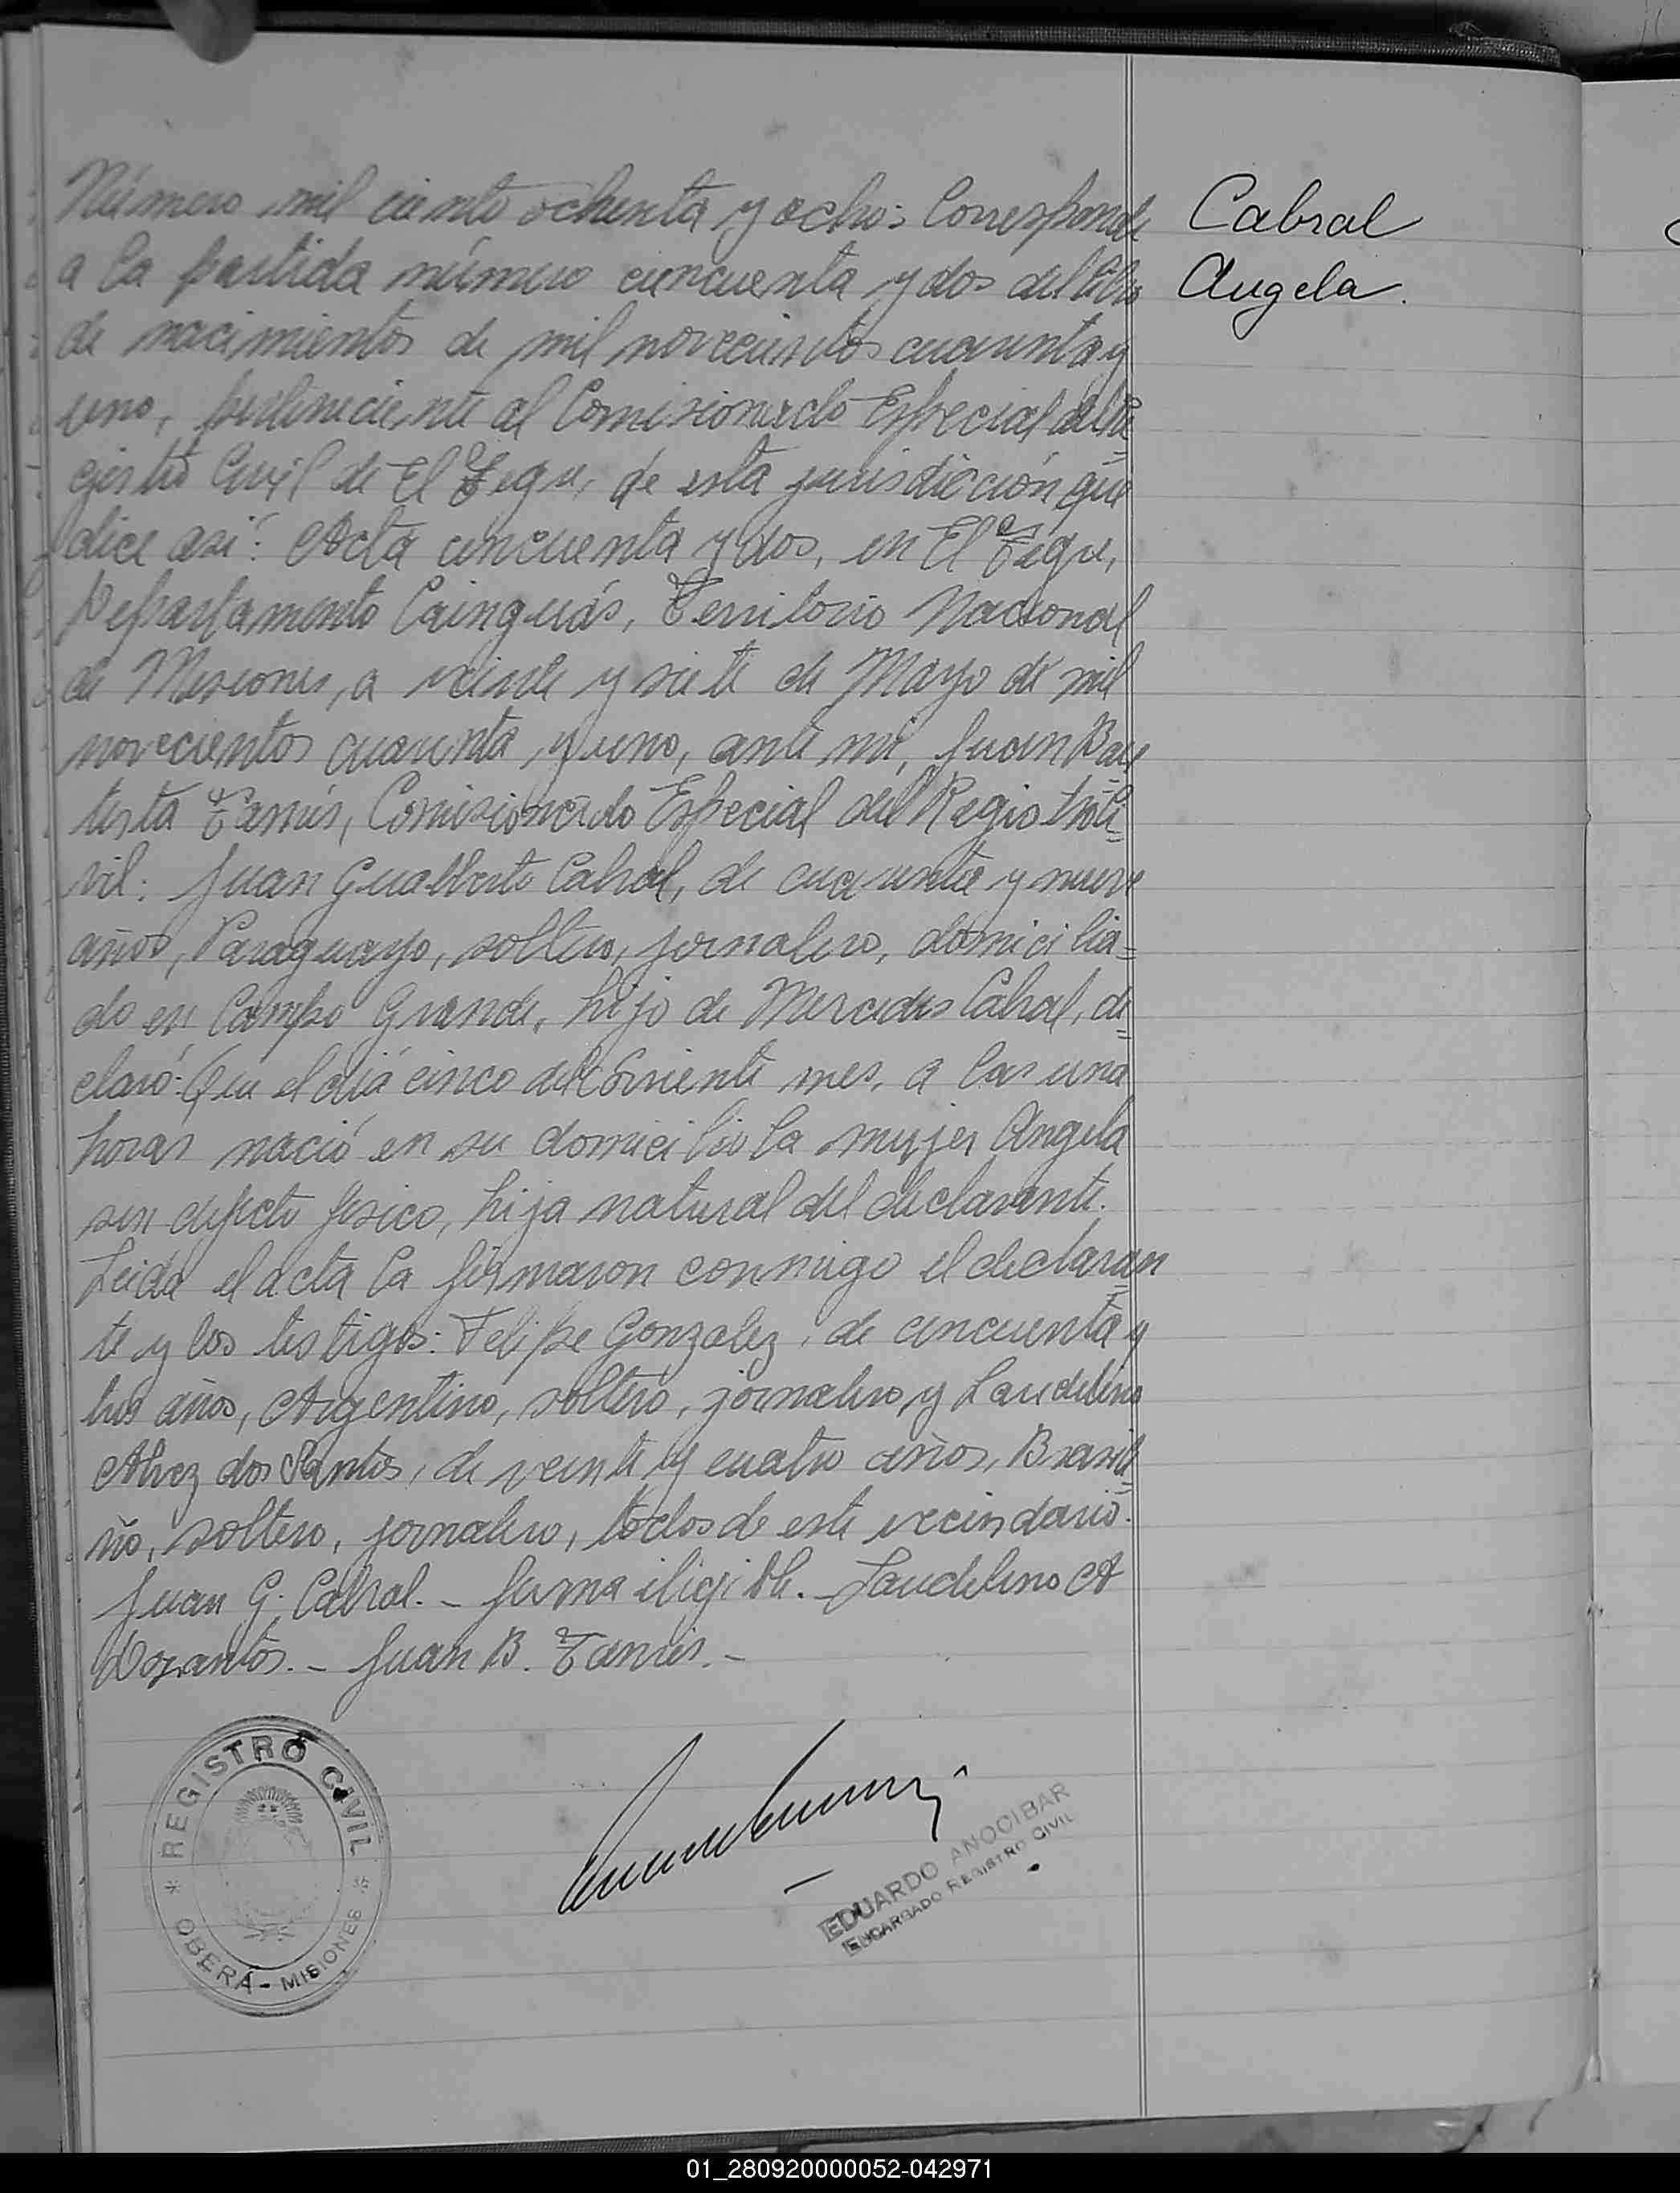 Número mil ciento ochenta y ocho: Corresponde
a la partida número cincuenta y dos del libro
de nacimientos de mil novecientos cuarenta y
uno, perteneciente al Comisionado Especial del Re=
gistro Civil de El Tegu, de esta jurisdicción que
dice así: Acta cincuenta y dos, en El Tegu,
Departamento Cainguás, Territorio Nacional
de Misiones, a veinte y siete de Mayo de mil
novecientos cuarenta y uno, ante mi, Juan Bau
tista, Comisionado Especial del Registro Ci=
vil: Juan Gualberto Cabral, de cuarenta y nueve
años, Paraguayo, soltero, jornalero, domicilia=
do en Campo Grande, hijo de Mercedes Cabral, de=
claró: Que el día cinco del corriente mes, a las una
horas nació en su domicilio la mujer Angela
sin defecto físico, hija natural del declarante.
Leida el acta la firmaron conmigo el declaran
te y los testigos: Felipe Gonzalez, de cincuenta y
tres años, Argentino, soltero, jornalero, y Laudelino
Alvez dos Santos, de veinte y cuatro años, Brasile=
ño, soltero, jornalero, todos de este vecindario.
Juan G. Cabral. - firma ilegible. - Laudelino A
Dozantos. - Juan B.
Cabral
Angela.
REGISTRO CIVIL
OBERÁ - MISIONES
EDUARDO ANOCIBAR
ENCARGADO REGISTRO CIVIL
01_280920000052-042971